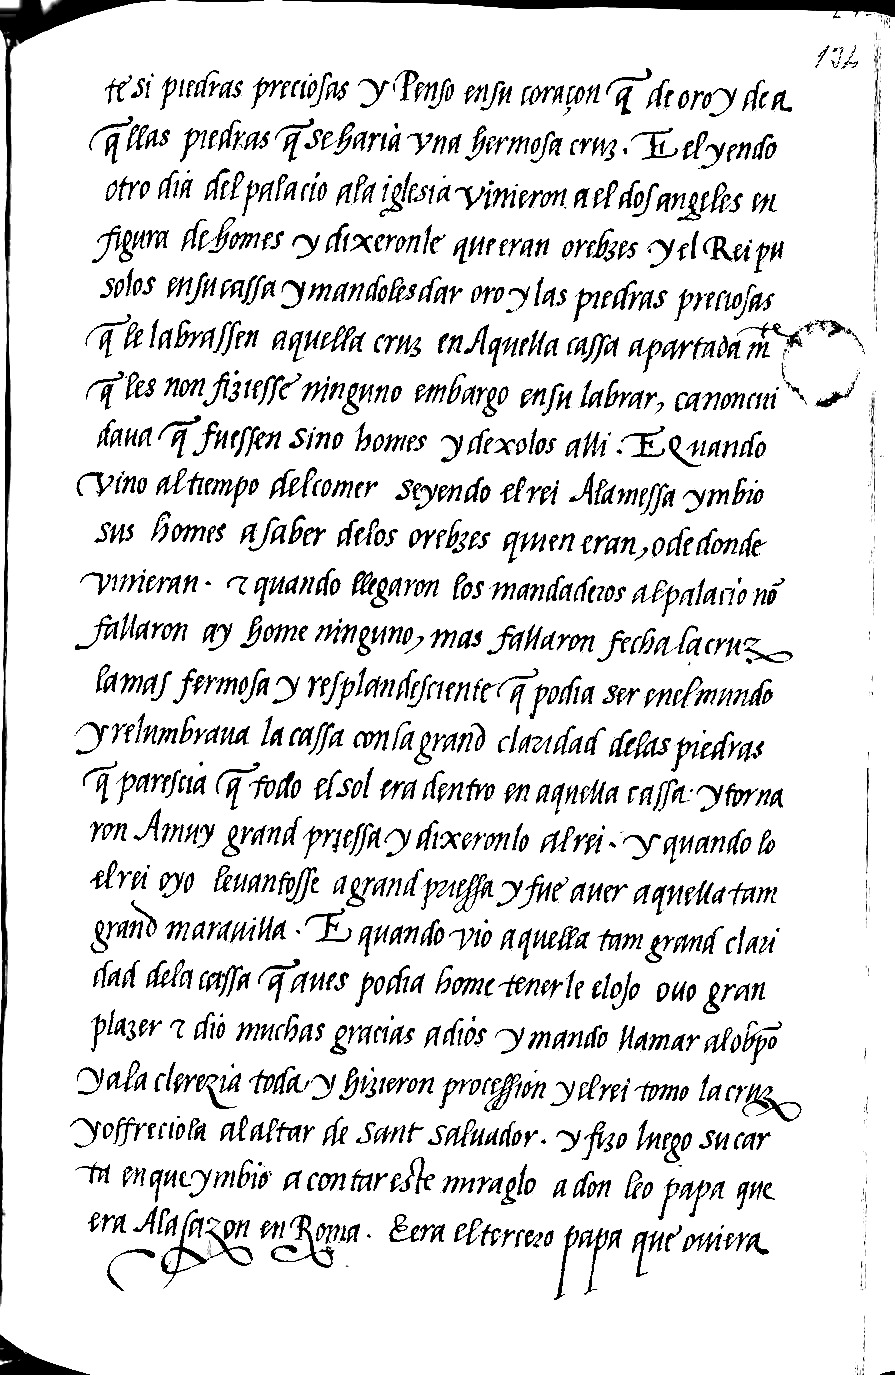 132
te si piedras preciosas y Penso en su coraçon q̃ de oro y de a
q̃llas piedras q̃ se haria vna hermosa cruz. E el yendo
otro dia del palacio ala iglesia vinieron a el dos angeles en
figura de homes y dixeronle que eran orebzes y el Rei pu
solos en su cassa y mandoles dar oro y las piedras preciosas
q̃ le labrassen aquella cruz en Aquella cassa apartada m̃te
q̃ les non fiziesse ninguno embargo en su labrar, ca non cui
daua q̃ fuessen sino homes y dexolos alli. E Quando
vino al tiempo del comer seyendo el rei Ala messa ymbio
sus homes a saber delos orebzes quien eran, o de donde
vinieran. τ quando llegaron los mandaderos al palacio nõ
fallaron ay home ninguno, mas fallaron fecha la cruz
la mas fermosa y resplandesciente q̃ podia ser enel mundo
y relumbraua la cassa con la grand claridad delas piedras
q̃ parescia q̃ todo el sol era dentro en aquella cassa. y torna
ron A muy grand priessa y dixeronlo al rei. y quando lo
el rei oyo leuantosse a grand priessa y fue a uer aquella tam
grand marauilla. E quando vio aquella tam grand clari
dad dela cassa q̃ aues podia home tenerle el ojo ouo gran
plazer τ dio muchas gracias a dios y mando llamar al obp̃o
y ala clerezia toda, y hizieron procession y el rei tomo la cruz
y offreciola al altar de Sant Saluador. y fizo luego su car
ta en que ymbio a contar este miraglo a don leo papa que
era Ala sazon en Roma. E era el tercero papa que ouiera